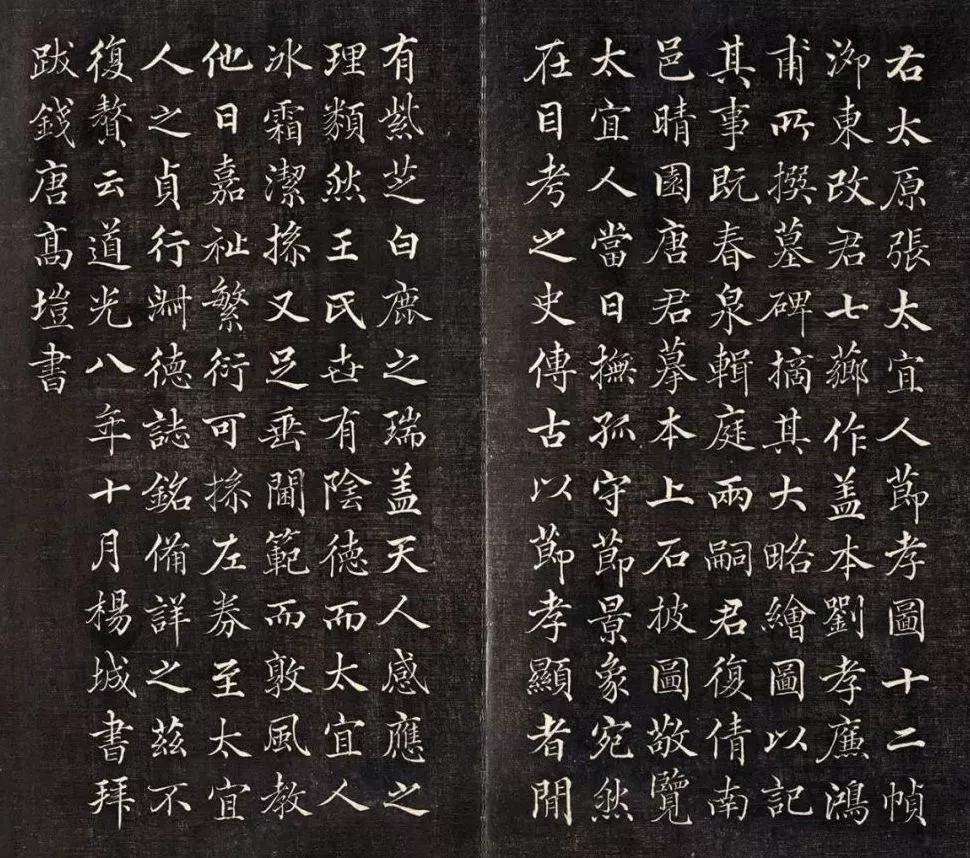 右太原張太宜人節孝圖十二幀
泖東改君七薌作蓋本劉孝廉鴻
甫所撰墓碑摘其大略繪圖以記
其事既春泉輯庭兩嗣君復倩南
邑晴園唐君摹本上石披圖敬覽
太宜人當日撫孤守節景象宛然
在目考之史傳古以節孝顯者間
有紫芝白鹿之瑞蓋天人感應之
理類然王氏世有陰德而太宜人
冰霜潔操又足垂閫範而敦風教
他日嘉祉繁衍可操左券至太宜
人之貞行淑德誌銘備詳之茲不
復贅云道光八年十月楊城書拜
跋錢唐高塏書